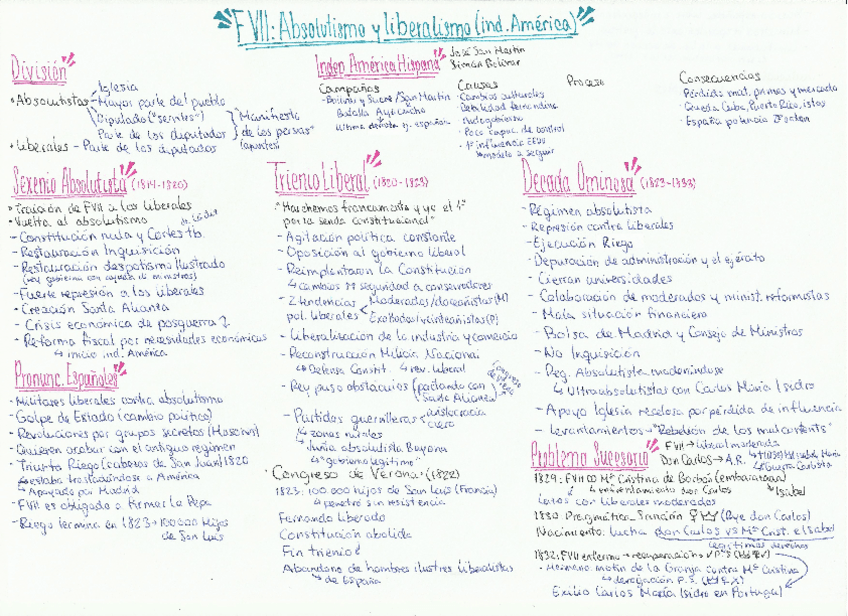 FVII: Absolutismo y liberalismo (ind. América)
División
• Absolutistas
Iglesia
Mayor parte del pueblo
Diputados ("serviles")
Parte de los diputados
"Manifiesto
de los persas"
(apuntes)
• Liberales - Parte de los diputados
Indep. América Hispana
José San Martín
Simón Bolívar
Campañas
- Bolívar y Sucre/San Martín
Batalla Ayacucho
última derrota ej. español
Causas
- Cambios culturales
- Debilidad fernandina
- Poca capac. de control
- 1ª influencia EEUU
↳ modelo a seguir
Proceso
Consecuencias
- Pérdida mat. primas y mercado
- Queda Cuba, Puerto Rico, islas
- España potencia 2º orden
Sexenio Absolutista (1814-1820)
• Traición de FVII a los liberales
• Vuelta al absolutismo
- Constitución nula y Cortes tb.
- Restauración Inquisición
- Restauración despotismo ilustrado
(rey gobierna con ayuda de ministros)
- Fuerte represión a los liberales
- Creación Santa Alianza
- Crisis económica de posguerra
- Reforma fiscal por necesidades económicas
↳ inicio ind. América
Pronunc. Españoles
- Militares liberales contra absolutismo
- Golpe de Estado (cambio político)
- Revoluciones por grupos secretos (Masones)
- Quieren acabar con el antiguo régimen
- Triunfa Riego (cabezas de San Juan) 1820
↳ estaba trasladándose a América
↳ Apoyado por Madrid
- FVII es obligado a firmar La Pepa
- Riego termina en 1823 → 100 000 hijos
de San Luis
Trienio Liberal (1820-1823)
"Marchemos francamente y yo el 1º
por la senda constitucional"
- Agitación política constante
- Oposición al gobierno liberal
- Reimplantaron la Constitución
↳ cambios seguridad a conservadores
- 2 tendencias
pol. liberales
Moderados/doceañistas (M)
Exaltados/veinteañistas (P)
- Liberalización de la industria y comercio
- Reconstrucción Milicia Nacional
↳ Defensa Constit. ↳ rev. liberal
- Rey puso obstáculos (pactando con
Santa Alianza)
- Partidas guerrilleras
aristocracia
clero
↳ zonas rurales
↳ Junta absolutista
↳ "gobierno legítimo"
• Congreso de Verona: (1822)
1823: 100 000 hijos de San Luis (Francia)
↳ penetró sin resistencia
Fernando liberado
Constitución abolida
Fin trienio
Abandono de hombres ilustres liberalistas
↳ de España
Década Ominosa (1823-1833)
- Régimen absolutista
- Represión contra liberales
- Ejecución Riego
- Depuración de administración y el ejército
- Cierran universidades
- Colaboración de moderados y minist. reformistas
- Mala situación financiera
- Bolsa de Madrid y Consejo de Ministros
- No Inquisición
- Reg. Absolutista modernizándose
↳ Ultraabsolutistas con Carlos María Isidro
- Apoyo Iglesia recelosa por pérdida de influencia
- Levantamientos → "Rebelión de los malcontents"
Problema Sucesorio
FVII → liberal moderada
Don Carlos → A.R.
↳ Guerra Carlista
1829: FVII ∞ Mª Cristina de Borbón (embarazada)
↳ enfrentamiento don Carlos
↳ Isabel
Lazos con liberales moderados
1830 Pragmática Sanción (Huye don Carlos)
Nacimiento: lucha don Carlos vs Mª Crist. e Isabel
legítimos derechos
1832: FVII enfermo → recuperación
- Hermano: motín de la Granja contra Mª Cristina
↳ derogación P.S.
Exilio Carlos María Isidro en Portugal